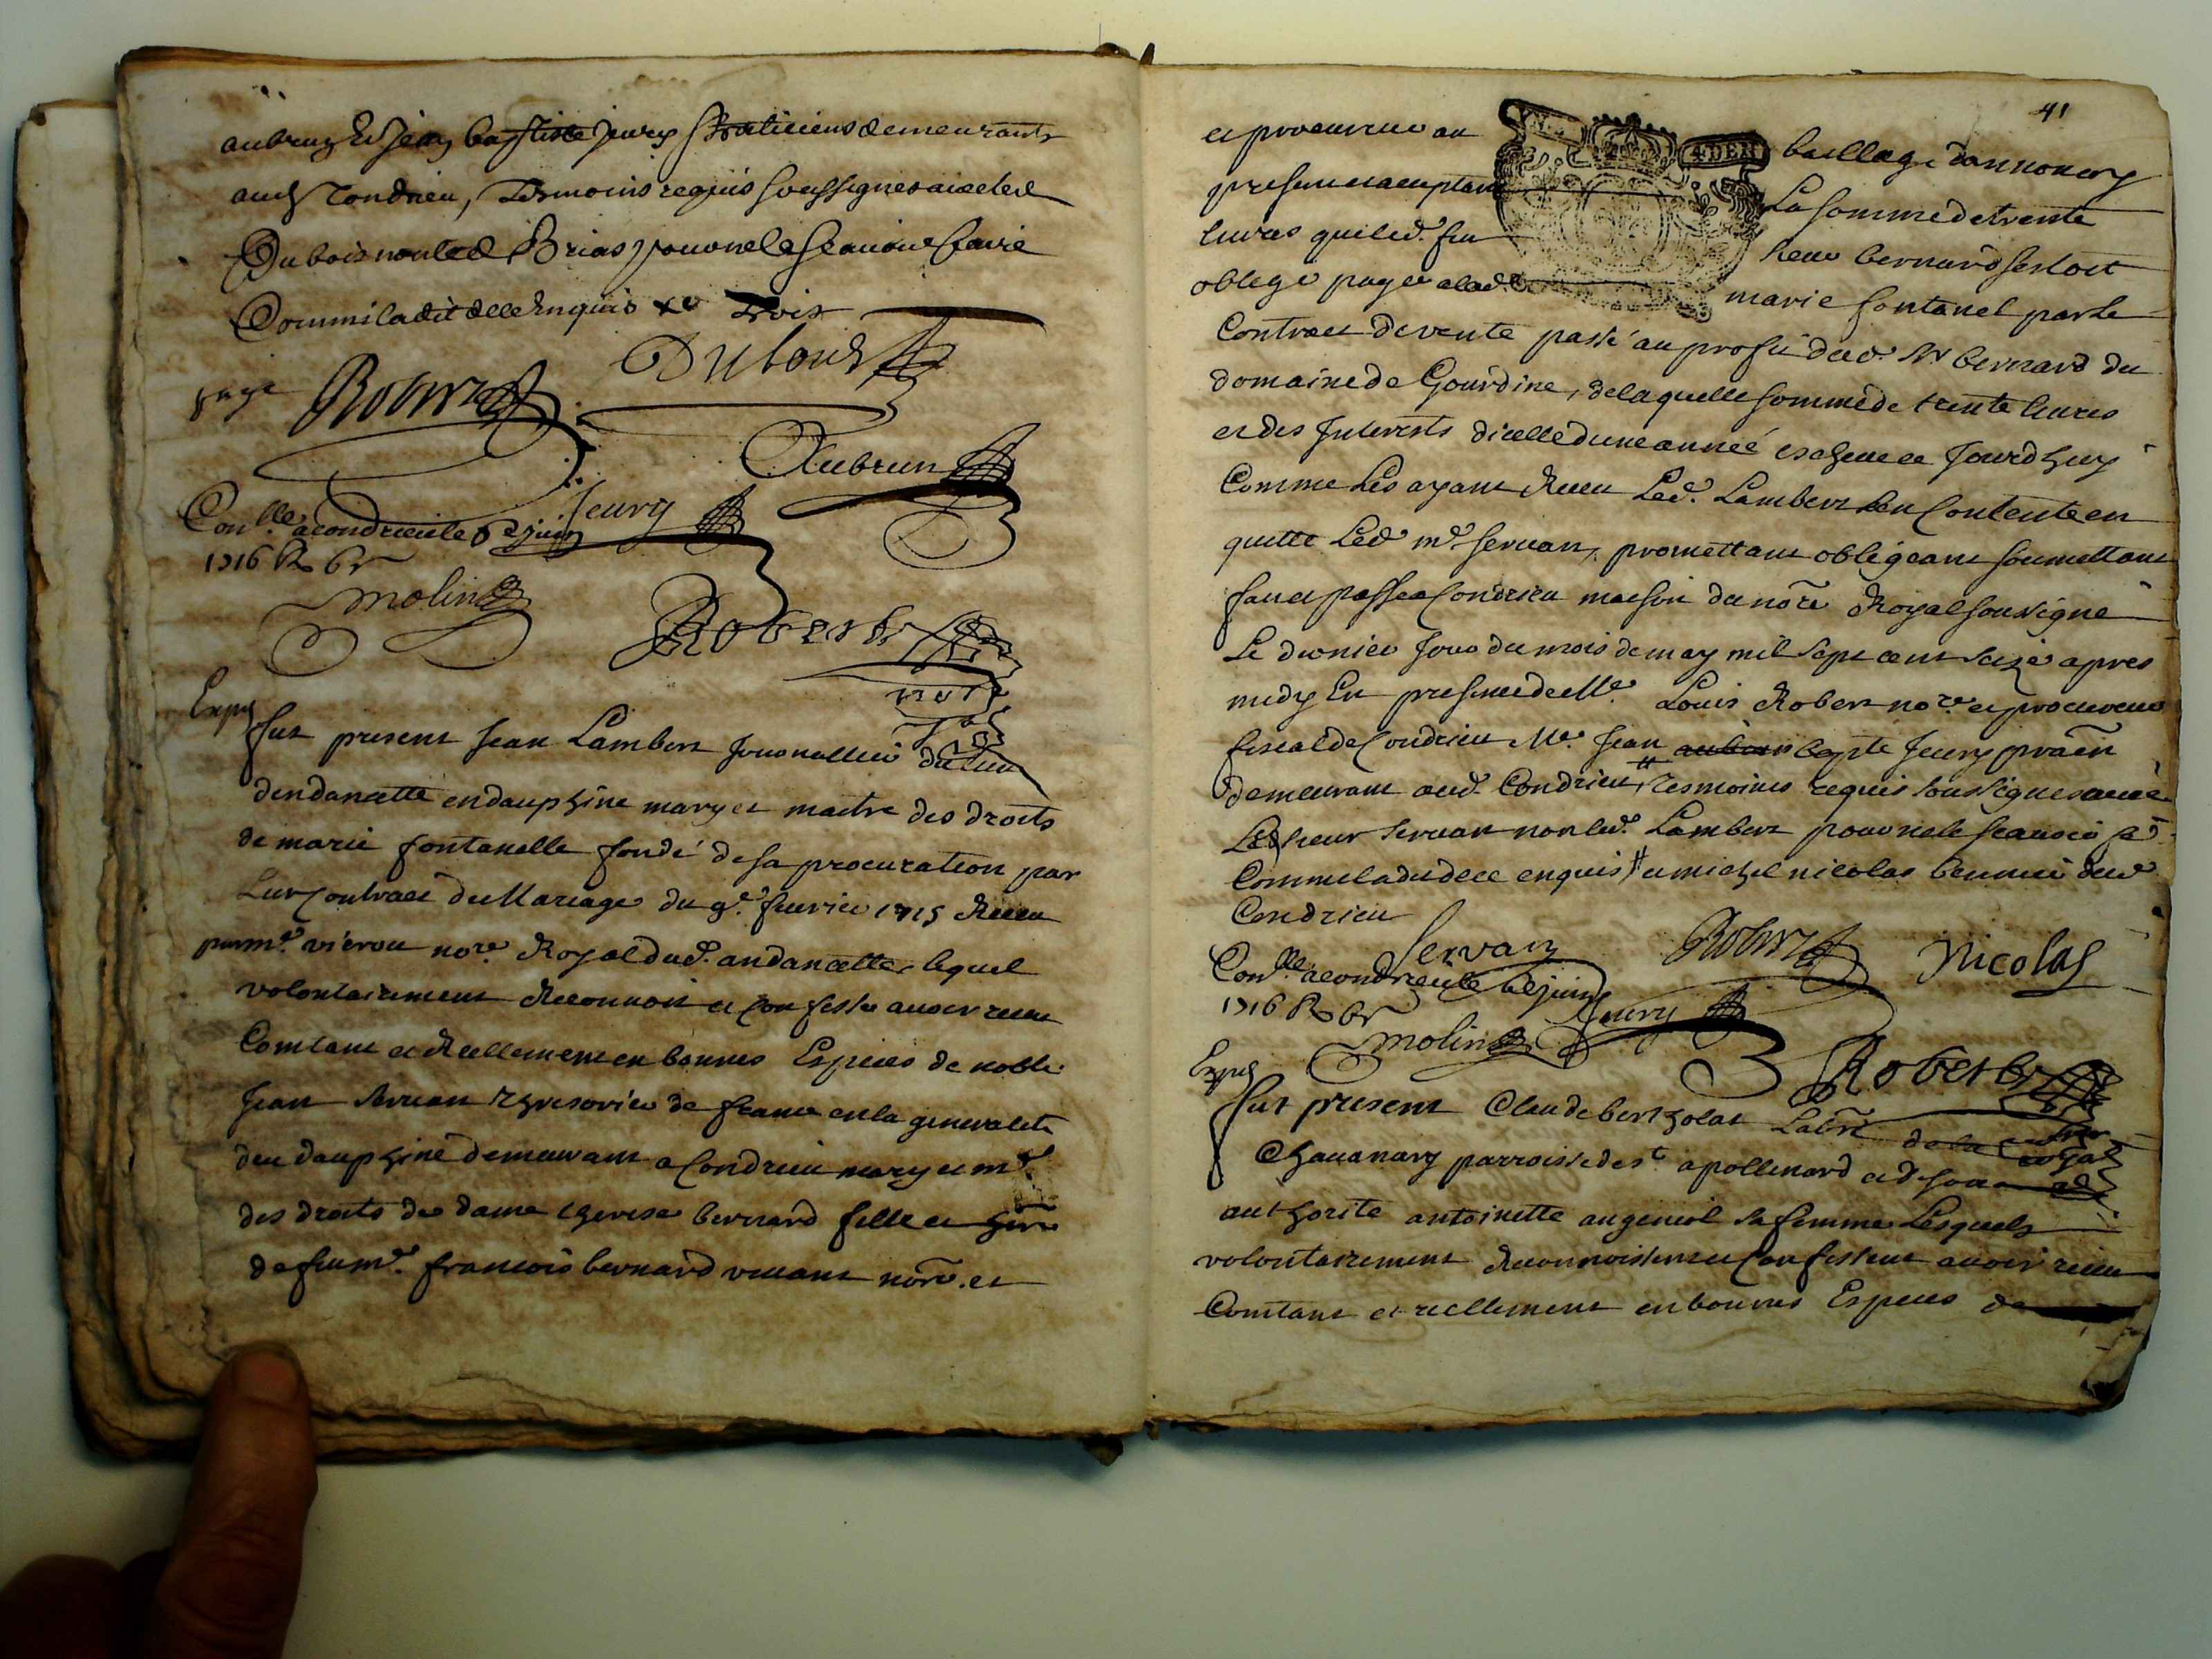 aubrun Et Jean baptiste jeury praticiens demeurants
aud Condrieu, tesmoins requis soussignes avec led
Dubois non led Brias pour ne le scavoir faire
Comm il a dit de ce Enquis
Robert
Dubouis
Aubrun
Jeury
Conlle. a condrieu le 6e juin
1716 R 6s
molin
Robert
nore
Exped
fut present Jean Lambert Journallier du lieu
dandancette en dauphine mary et maitre des droits
de marie fontanelle fondé de sa procuration par
Leur Contract de Mariage du 9e. fevrier 1715 Receu
par me. vierou nore. Royal dud. andancette, lequel
volontairement Reconnoit et Confesse avoir receu
Comtant et Reellement en bonnes Especes de noble
Jean Servan thresorier de france en la generalité
du dauphiné demeurant a Condrieu mary et me
des droits de dame therese bernard fille et
de feu me. francois bernard vivant nore. et
41
4 DEN
et procureur au baillage dannonay
present et acceptant La somme de trente
livres que led. feu sieur bernard sestoit
oblige payer a lad. marie fontanel par le
Contract de vente passé au profit dud. Sr bernard du
domaine de Gourdine, de laquelle somme de trente livres
et des Interests dicelle dune année escheue ce Jourdhuy
Comme Les ayant Receu Led. Lambert sen Contente en
quitte Led me. Servan, promettant obligeant soumettant
fait et passé a Condrieu maison du nore Royal soussigné
Le dernier Jour du mois de may mil sept cent seize apres
midy En presence de Me. Louis Robert nore. et procureur
fiscal de Condrieu Me. Jean aubrun bapte Jeury praen
demeurant aud. Condrieu, # tesmoins requis soussignes avec
Led sieur Servan non led. Lambert pour ne le scavoir f
Comme la dit de ce enquis # et michel nicolas dud
Condrieu
Servan
Robert
Nicolas
Conlle. a condrieu le 6e juin
1716 R 6s
molin
Jeury
Robert
Exped
fut present Claude bertholat Labr de
Chavanay parroisse de st apollinard et de son
authorité antoinette angeniol sa femme Lesquels
volontairement Reconnoissent et Confessent avoir receu
Comtant et reellement en bonnes Especes de